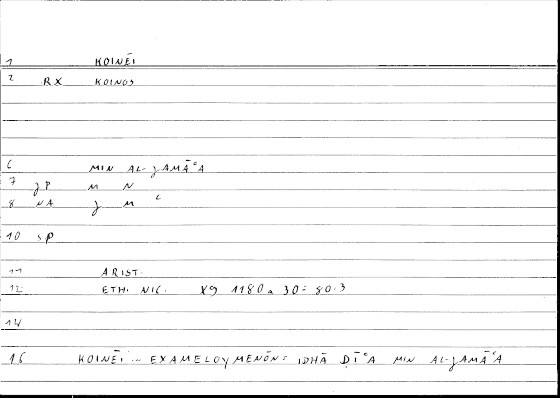 1 KOINĒI
2 RX KOINOS
6 MIN AL-JAMĀʿA
7 JP M N
8 NA J M ʿ
10 SP
11 ARIST.
12 ETH. NIC. X9 1180 a 30 = 80.3
14
16 KOINĒI ... EXAMELOYMENŌN = IDHĀ ḌĪʿA MIN AL-JAMĀʿA